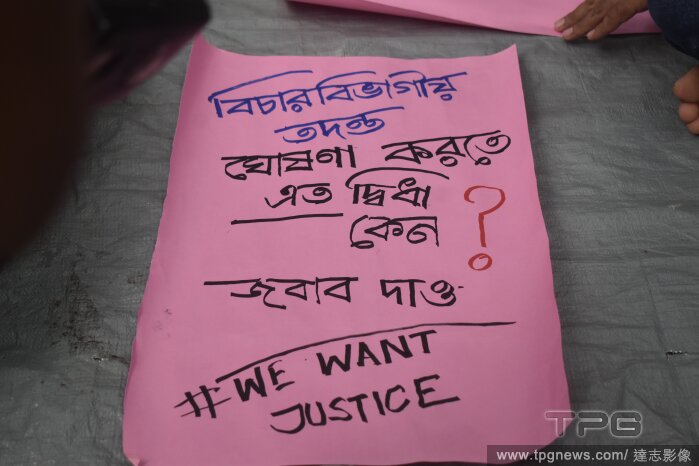 বিচার বিভাগীয়
তদন্ত
ঘোষণা করতে
এত দ্বিধা
কেন ?
জবাব দাও
#WE WANT
JUSTICE
TPG
www.tpgnews.com/ 達志影像